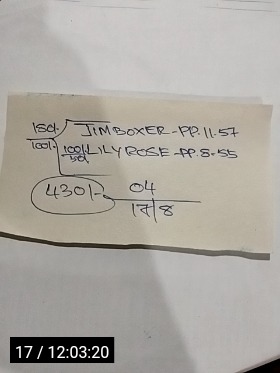 150/- JIMBOXER-PP.11.57
100/- 100/- LILYROSE-PP.8.55
50/-
430/- 04
17/8
17 / 12:03:20